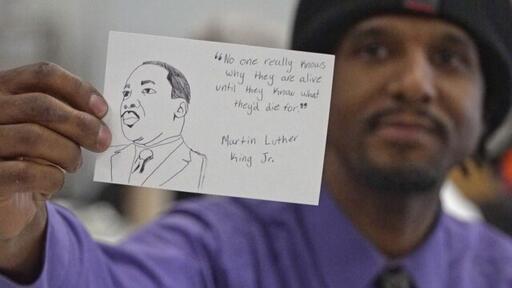 "No one really knows
why they are alive
until they know what
they'd die for."
Martin Luther
King Jr.